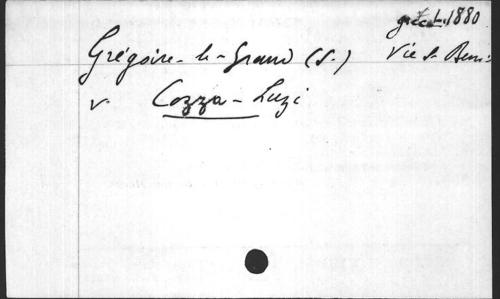 grec L. 1880
Grégoire-le-Grand (S.) Vie S. Ben:
v. Cozza-Luzi